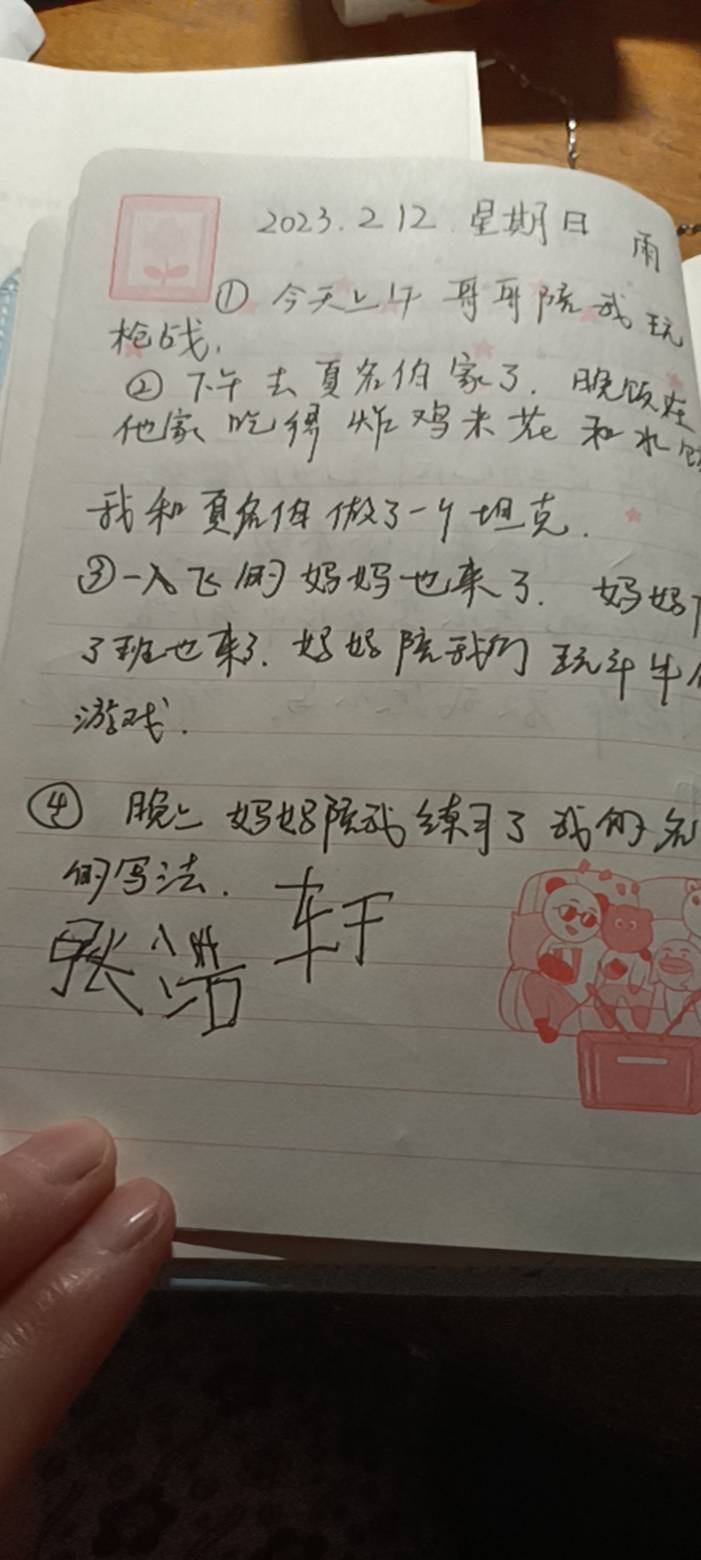 2023.2.12 星期日 雨
① 今天上午哥哥陪我玩
枪战.
② 下午去夏名伯家了.晚饭在
他家吃得炸鸡米花和水饺
我和夏名伯做了一个坦克.
③一人飞的妈妈也来了. 妈妈下
了班也来了.妈妈陪我们玩斗牛
游戏.
④ 晚上妈妈陪我练习了我的名
的写法.
张浩轩